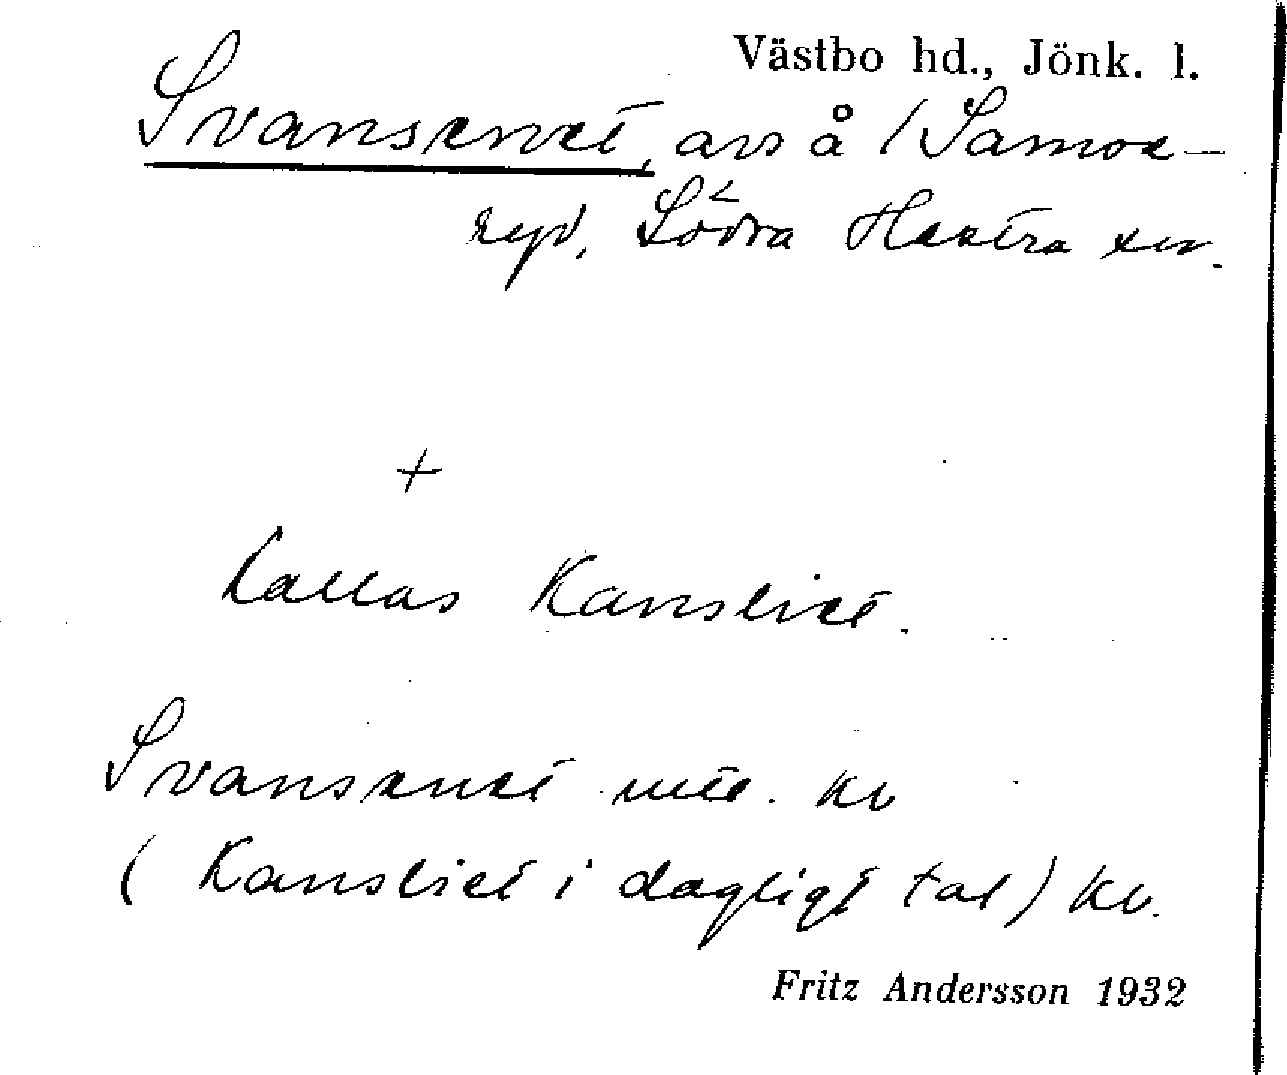 Västbo hd., Jönk. l.
Svansenet, avs å /Samse-
ryd, Södra Hestra sn.
+
kallas Kansliet.
Svansenet kv
(Kansliet i dagligt tal) kv.
Fritz Andersson 1932